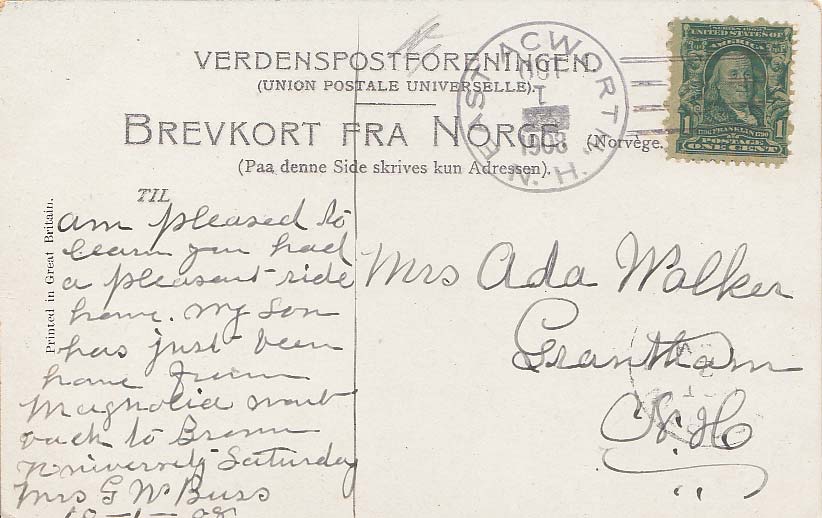 VERDENSPOSTFORENINGEN
(UNION POSTALE UNIVERSELLE).
BREVKORT FRA NORGE. (Norvège.
(Paa denne Side skrives kun Adressen).
EAST ACWORTH
N. H.
OCT
1
1908
SERIES 1902
UNITED STATES OF
AMERICA
1 1706 FRANKLIN 1790 1
POSTAGE
ONE CENT
Printed in Great Britain.
TIL
am pleased to
learn you had
a pleasant ride
home. My son
has just been
home from
Magnolia went
back to Brown
University Saturday
Mrs G W Buss
10-1-08
Mrs Ada Walker
Grantham
N. H